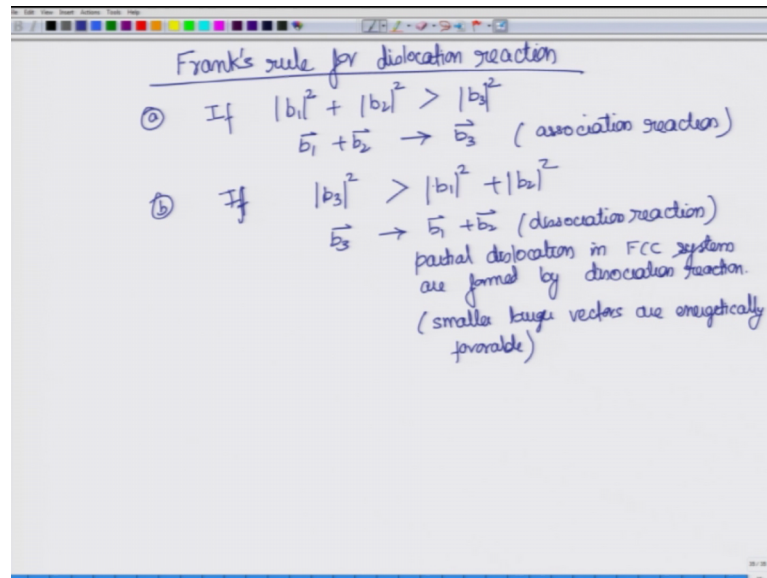 File Edit View Insert Actions Tools Help
Frank's rule for dislocation reaction
ⓐ If |b₁|² + |b₂|² > |b₃|²
b₁⃗ + b₂⃗ → b₃⃗ (association reaction)
ⓑ If |b₃|² > |b₁|² + |b₂|²
b₃⃗ → b₁⃗ + b₂⃗ (dissociation reaction)
partial dislocation in FCC system
are formed by dissociation reaction.
(smaller burger vectors are energetically
favorable)